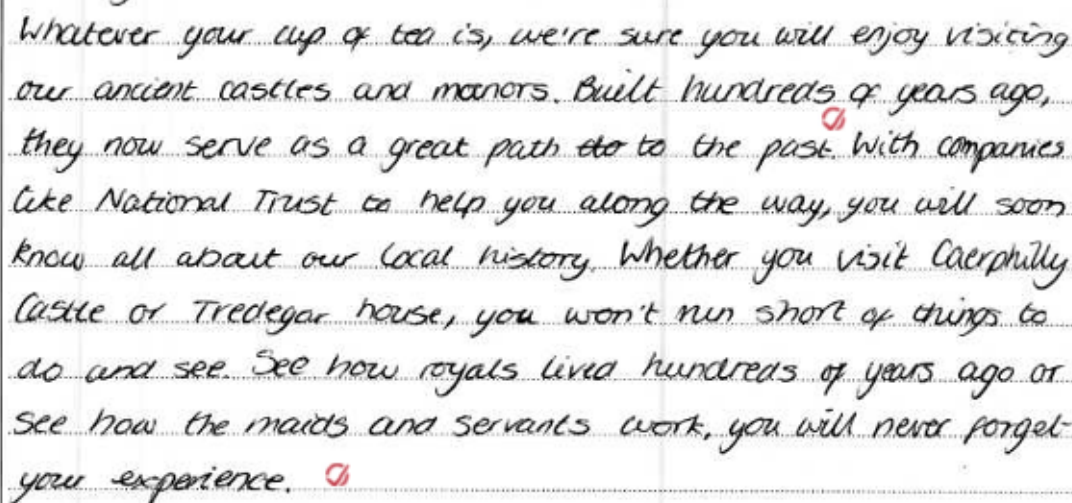 Whatever your cup of tea is, we're sure you will enjoy visiting
our ancient castles and manors. Built hundreds of years ago,
they now serve as a great path to to the past. With companies
like National Trust to help you along the way, you will soon
know all about our local history. Whether you visit Caerphilly
Castle or Tredegar house, you won't run short of things to
do and see. See how royals lived hundreds of years ago or
see how the maids and servants work, you will never forget
your experience.